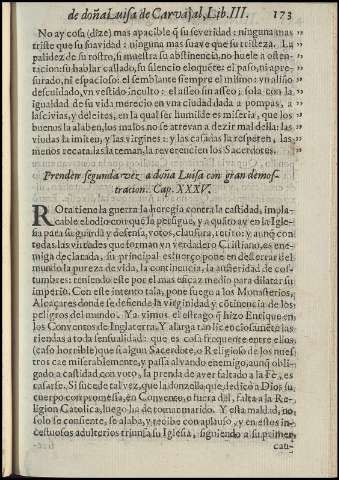 de doña Luisa de Carvajal, Lib. III. 173
No ay cosa (dize) mas apacible q̃ su seueridad: ninguna mas
triste que su suauidad: ninguna mas suaue que su tristeza. La
palidez de su rostro, si muestra su abstinencia, no huele a osten-
tacion: su hablar callado, su silencio eloquẽte: el paso, ni apre-
surado, ni espacioso: el semblante siempre el mismo: vn aliño
descuidado, vn vestido inculto: el aseo sin aseo; sola con la
igualdad de su vida merecio en vna ciudad dada a pompas, a
lasciuias, y deleites, en la qual ser humilde es miseria, que los
buenos la alaben, los malos no se atrevan a dezir mal della: las
viudas la imiten, y las virgines: y las casadas la respeten, las
menos recatadas la teman, la reuerencien los Sacerdotes.
Prenden segunda vez a doña Luisa con gran demos-
tracion. Cap. XXXV.
ROta tiene la guerra la heregia contra la castidad, impla-
cable el odio con que la persigue, y a quãto ay en la Igle-
sia para su guarda y defensa, votos, clausura, retiro: y aunq̃ con
todas las virtudes que forman vn verdadero Cristiano, es ene-
miga declarada, su principal esfuerço pone en desterrar del
mundo la pureza de vida, la continencia, la austeridad de cos-
tumbres: teniendo este por el mas eficaz medio para dilatar su
imperio. Con este intento tala, pone fuego a los Monasterios,
Alcaçares donde se defiende la virginidad y cõtinencia de los
peligros del mundo. Ya vimos el estrago q̃ hizo Enrique en
los Conventos de Inglaterra. Y alarga tan licenciosamẽte las
riendas a toda sensualidad: que es cosa frequente entre ellos
(caso horrible) que si algun Sacerdote, o Religioso de los nues-
tros cae miserablemente, y pasa al vando enemigo, aunq̃ obli-
gado a castidad con voto, la prenda de aver faltado a la Fè, es
casarse. Si sucede tal vez, que la donzella que dedicò a Dios su
cuerpo con promesa, en Convento, o fuera del, falta a la Re-
ligion Catolica, luego ha de tomar marido. Y esta maldad, no
solo se consiente, se alaba, y recibe con aplauso, y en estos in-
cestuosos adulterios triunfa su Iglesia, siguiendo a su primer
cau-